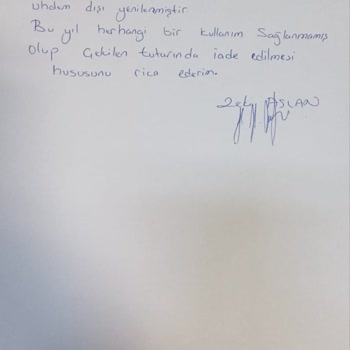 uhdem dışı yenilenmiştir
Bu yıl herhangi bir kullanım sağlanmamış
olup Çekilen tutarında iade edilmesi
hususunu rica ederim.
ASLAN